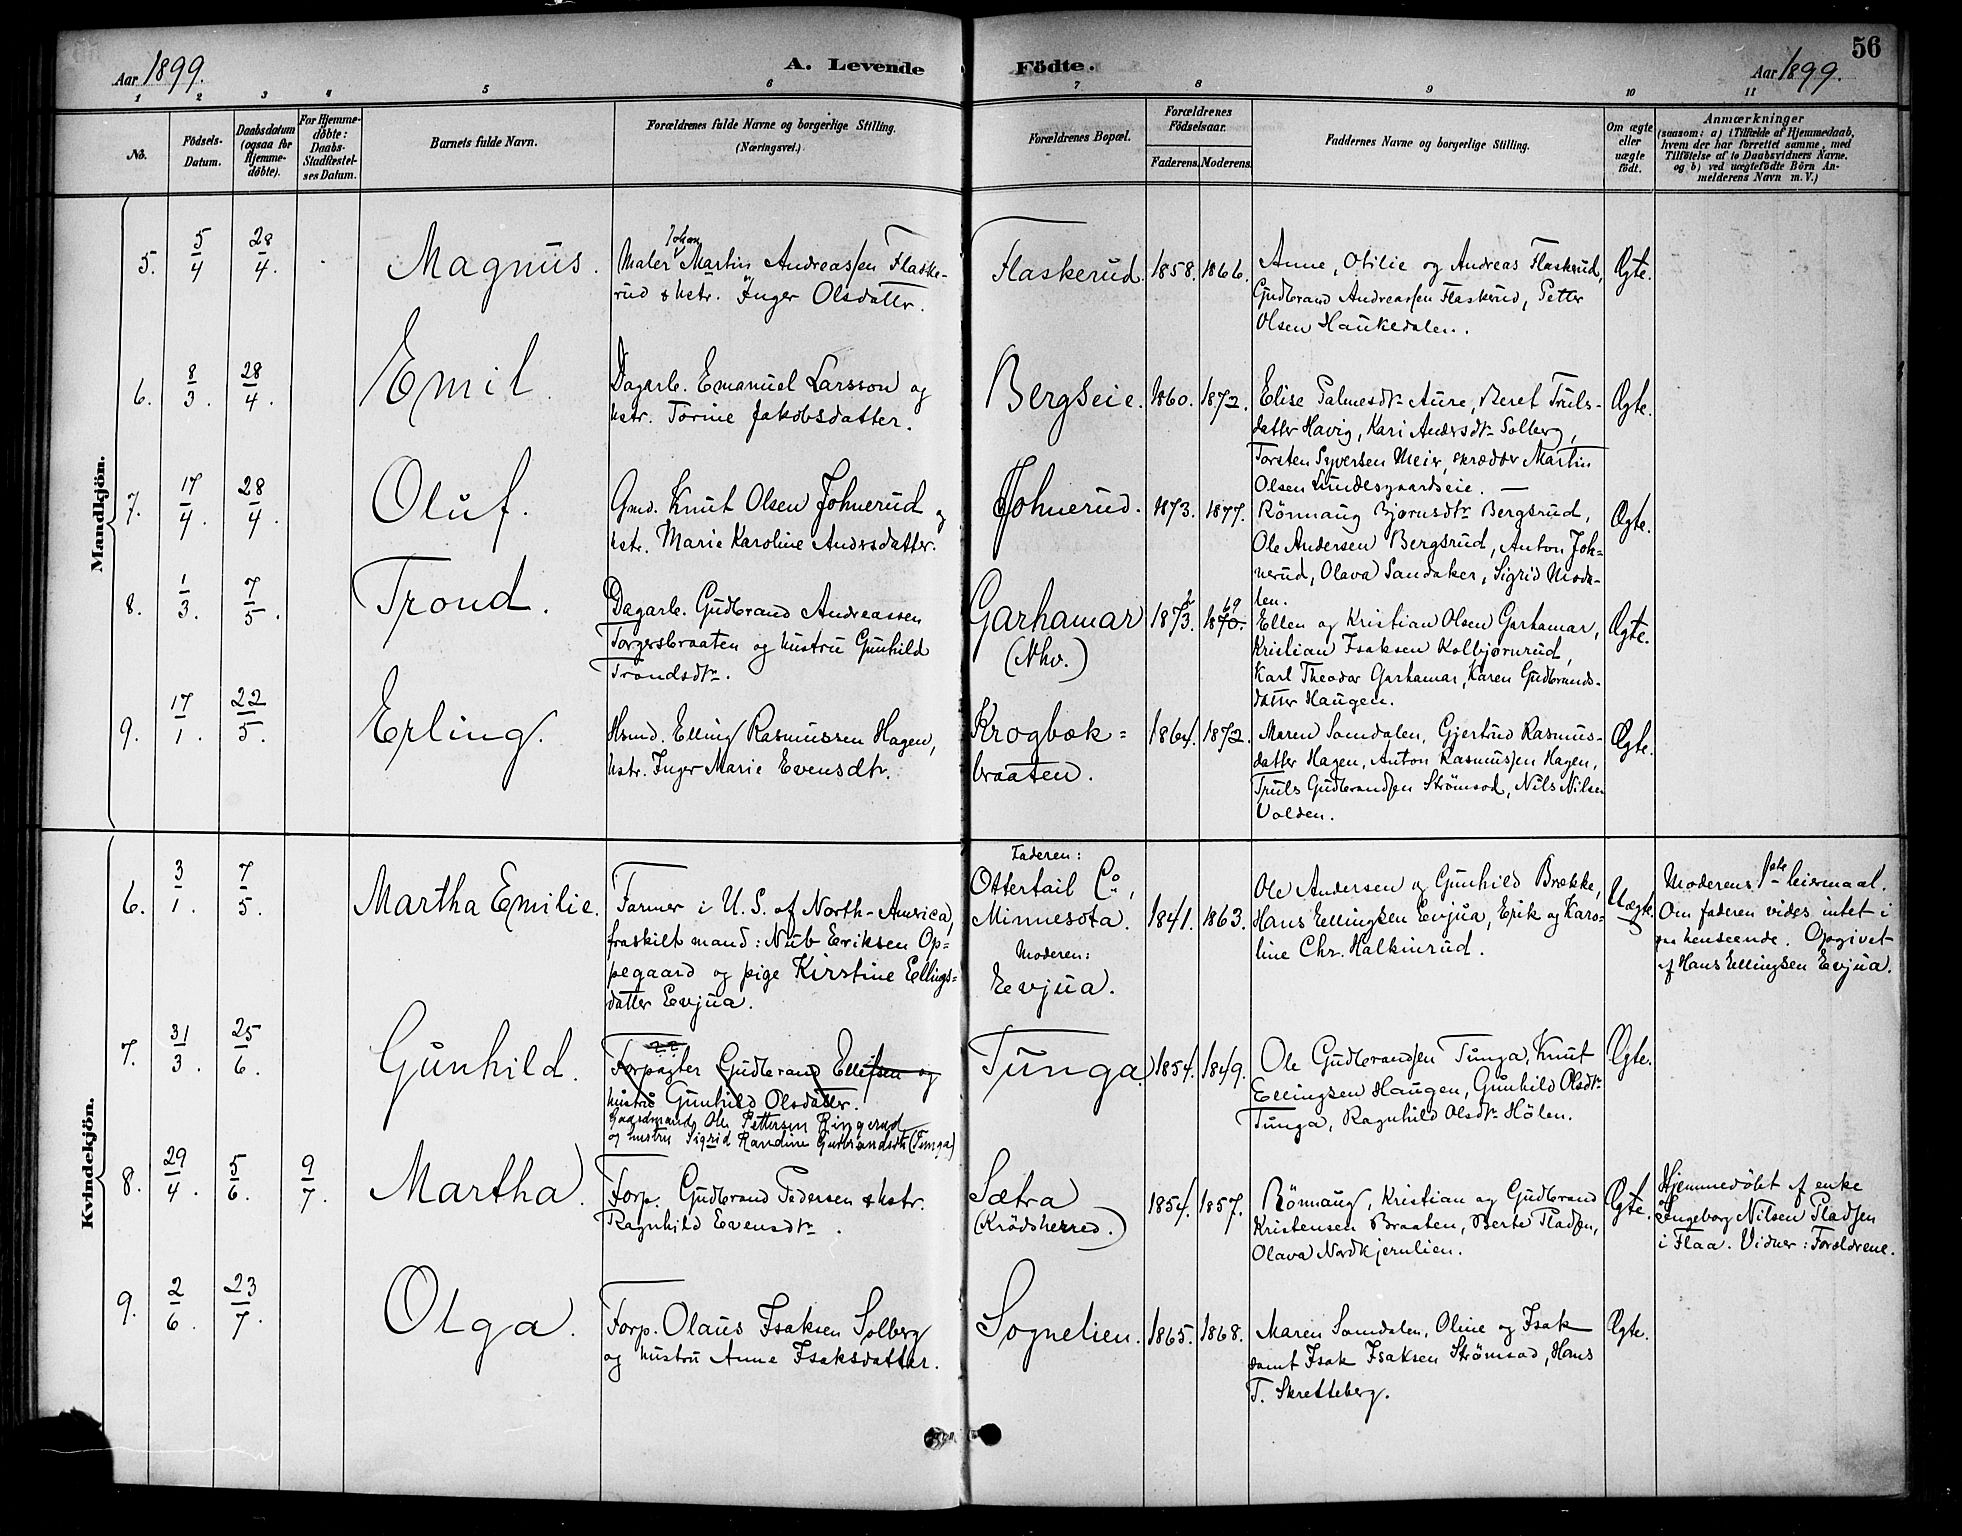 56
Aar 1899. A. Levende Födte. Aar 1899.
1 2 3 4 5 6 7 8 9 10 11
No.
Födsels-
Datum.
Daabsdatum
(ogsaa for
Hjemme-
døbte).
For Hjemme-
døbte:
Daabs-
Stadfæstel-
ses Datum.
Barnets fulde Navn.
Forældrenes fulde Navne og borgerlige Stilling.
(Næringsvei.)
Forældrenes Bopæl.
Forældrenes
Födselsaar.
Faderens. Moderens.
Faddernes Navne og borgerlige Stilling.
Om ægte
eller
uægte
födt.
Anmærkninger
(saasom: a) i Tilfælde af Hjemmedaab,
hvem der har forrettet samme, med
Tilföielse af to Daabsvidners Navne.
og b) ved uægtefödte Börn An-
melderens Navn m. V.)
Mandkjön.
5. 5/4 28/4. Magnus.
Maler Johan Martin Andreassen Flaske-
rud & hstr. Inger Olsdattr.
Flaskerud 1858. 1866.
Anne, Otilie og Andreas Flaskerud,
Gudbrand Andreassen Flaskerud, Petter
Olsen Haukedalen.
Ægte.
6. 8/3. 28/4. Emil
Dagarb. Emanuel Larsson og
hstr. Torine Jakobsdatter.
Bergseie. 1860. 1872.
Elise Palmesdtr Aure, Beret Truls-
datter Havig, Kari Andersdtr Solberg,
Torsten Syversen Meier, skrædder Martin
Olsen Lundesgaardseie.
Ægte.
7. 17/4. 28/4. Oluf.
Gmd. Knut Olsen Johnerud og
hstr. Marie Karoline Andrsdatter.
Johnerud. 1873. 1877.
Rönnaug Bjørnsdtr Bergsrud,
Ole Andersen Bergsrud, Anton Joh-
nerud, Olava Sandaker, Sigrid Moda-
len.
Ægte.
8. 1/3. 7/5. Trond.
Dagarb. Gudbrand Andreassen
Torgersbraaten og hustru Gunhild
Trondsdtr.
Garhamar
(Nhv.)
1873. 2 1870. 69
Ellen og Kristian Olsen Garhamar,
Kristian Isaksen Kolbjørnrud,
Karl Theodor Garhamar, Karen Gudbrands-
datter Haugen.
Ægte.
9. 17/1. 22/5. Erling.
Hsmd. Elling Rasmussen Hagen,
hstr. Inger Marie Evensdtr.
Krogbæk-
braaten.
1864. 1872.
Maren Somdalen, Gjertrud Rasmus-
datter Hagen, Anton Rasmussen Hagen,
Truls Gudbrandsen Strömsod, Nils Nilsen
Volden.
Ægte.
Kvindekjön.
6. 3/1. 7/5. Martha Emilie.
Farmer i U. S. of North-America,
fraskilt mand: Nub Eriksen Op-
pegaard og pige Kirstine Ellings-
datter Evjua.
Faderen:
Ottertail Co,
Minnesota.
Moderen:
Evjua.
1841. 1863.
Ole Andersen og Gunhild Brække,
Hans Ellingsen Evjua, Erik og Karo-
line Chr. Halkinrud.
Uægte.
Moderens 1ste leiermaal.
Om faderen vides intet i
henseende. Opgivet
af Hans Ellingsen Evjua.
7. 31/3. 25/6. Gunhild.
Forpagter Gudbrand Ellefsen og
hustru Gunhild Olsdatter.
Gaardmand Ole Pettersen Ringerud
og hustru Sigrid Randine Gudbrandsdtr (Tunga)
Tunga 1854. 1849.
Ole Gudbrandsen Tunga, Knut
Ellingsen Haugen, Gunhild Olsdtr
Tunga, Ragnhild Olsdtr Hölen.
Ægte.
8. 29/4. 5/6. 9/7. Martha.
Forp. Gudbrand Pedersen & hstr.
Ragnhild Evensdtr.
Sætra
(Krödsherred.)
1854. 1857.
Rönnaug, Kristian og Gudbrand
Kristensen Braaten, Berte Pladsen,
Olava Nordkjernlien.
Ægte.
Hjemmedöbt af enke
Ingeborg Nilsen Pladsen
i Flaa. Vidner: Forældrene.
9. 2/6. 23/7. Olga.
Forp. Olaus Isaksen Solberg
og hustru Anne Isaksdatter.
Sognelien. 1865. 1868.
Maren Somdalen, Oline og Isak
samt Isak Isaksen Strömsod, Hans
T. Skretteberg.
Ægte.